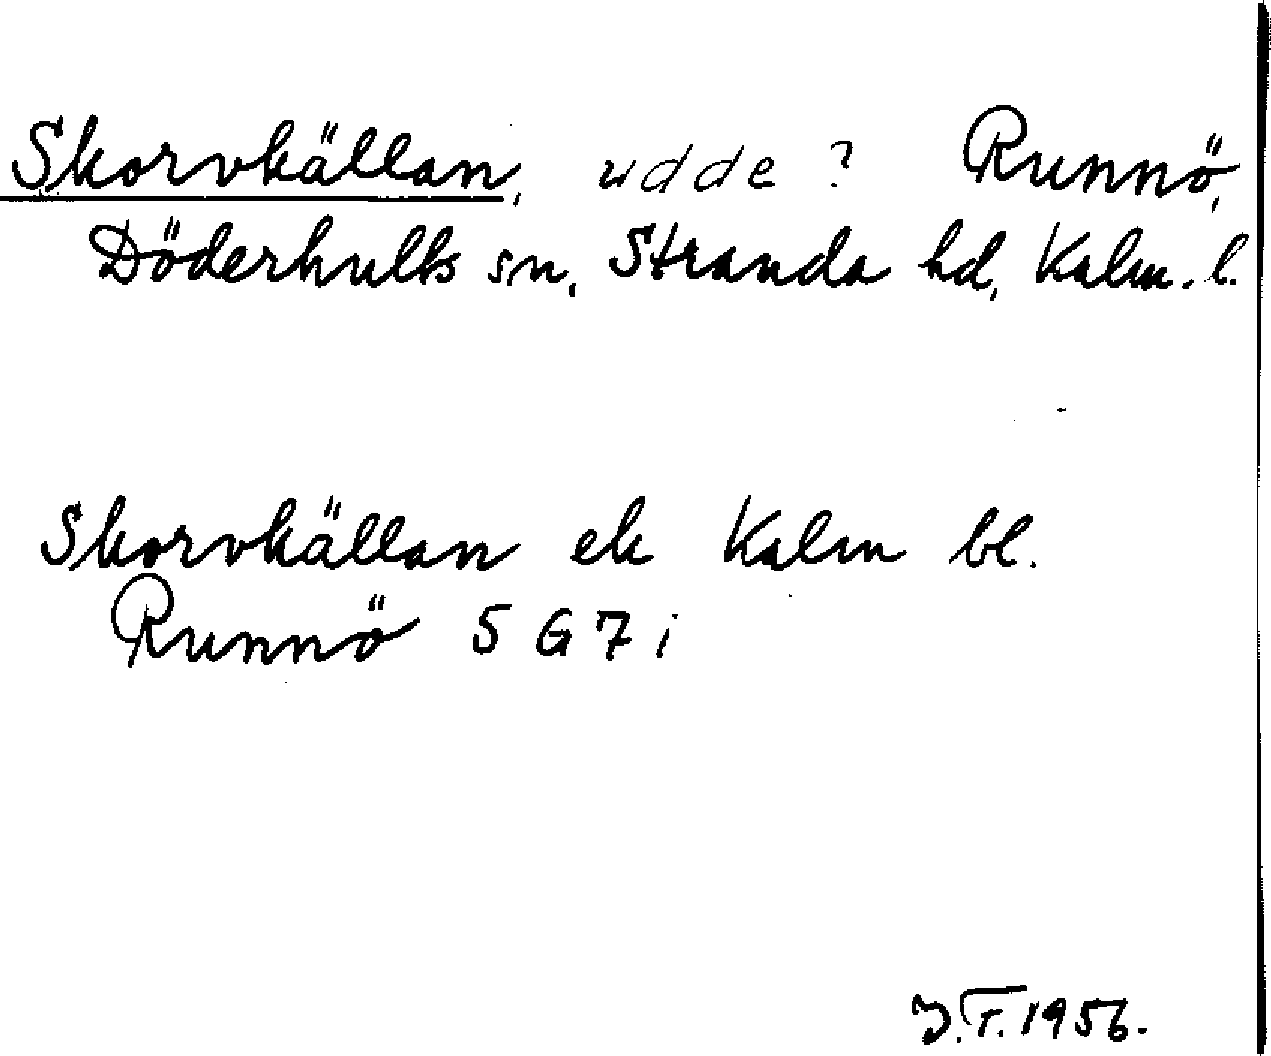 Skorvkällan, udde? Runnö,
Döderhults sn, Stranda hd, Kalm. l.
Skorvkällan ek Kalm bl.
Runnö 5 G 7 i
J.T. 1956.